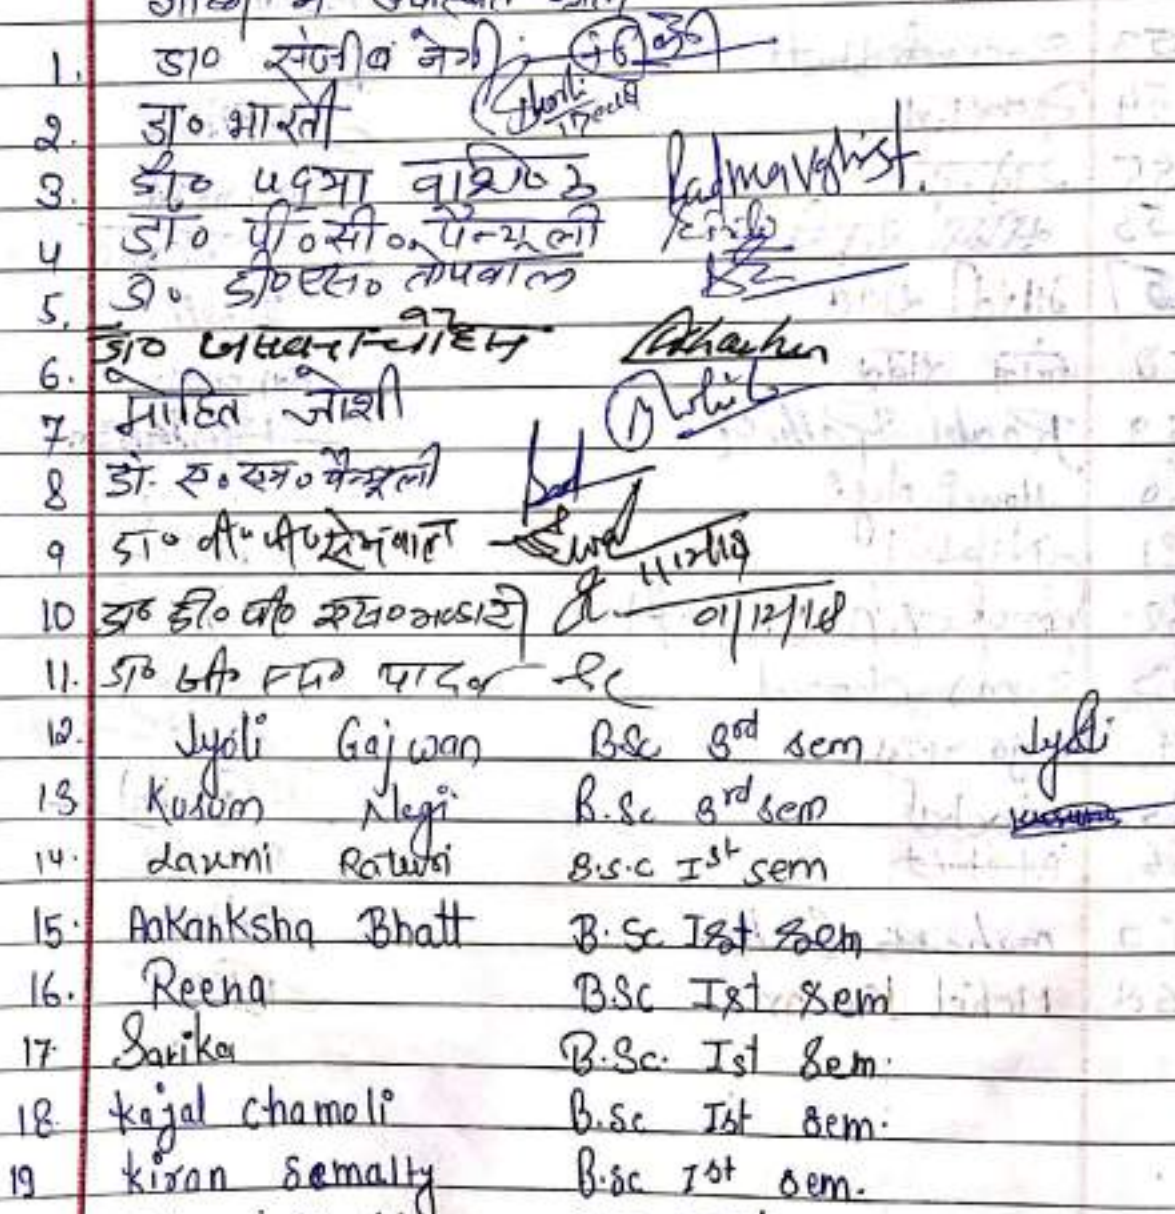 1. डा० संजीव नेगी
2. डा० भारती
3. डॉ० पदमा वाशिष्ठ Padmavshist.
4 डॉ० पी०सी०. पैन्यूली
5. डा० डी०एस० तोपवाल
6. डा०
7. मोहित जोशी Mohit
8 डॉ. ए. एम. पैन्यूली
9 डा० वी० पी० सेमवाल 1/12/18
10 डा० डी० पी० एस० भण्डारी 01/12/18
11. डा० यादव
12. Jyoti Gajwan BSc 3rd sem Jyoti
13 Kusum Negi B.Sc 3rd sem
14. Laxmi Raturi B.S.C Ist sem
15. Aakanksha Bhatt B.Sc Ist Sem
16. Reena BSc Ist Sem
17. Sarika B.Sc. Ist Sem.
18. Kajal Chamoli B.Sc Ist Sem.
19 Kiran Semalty B.Sc Ist Sem.